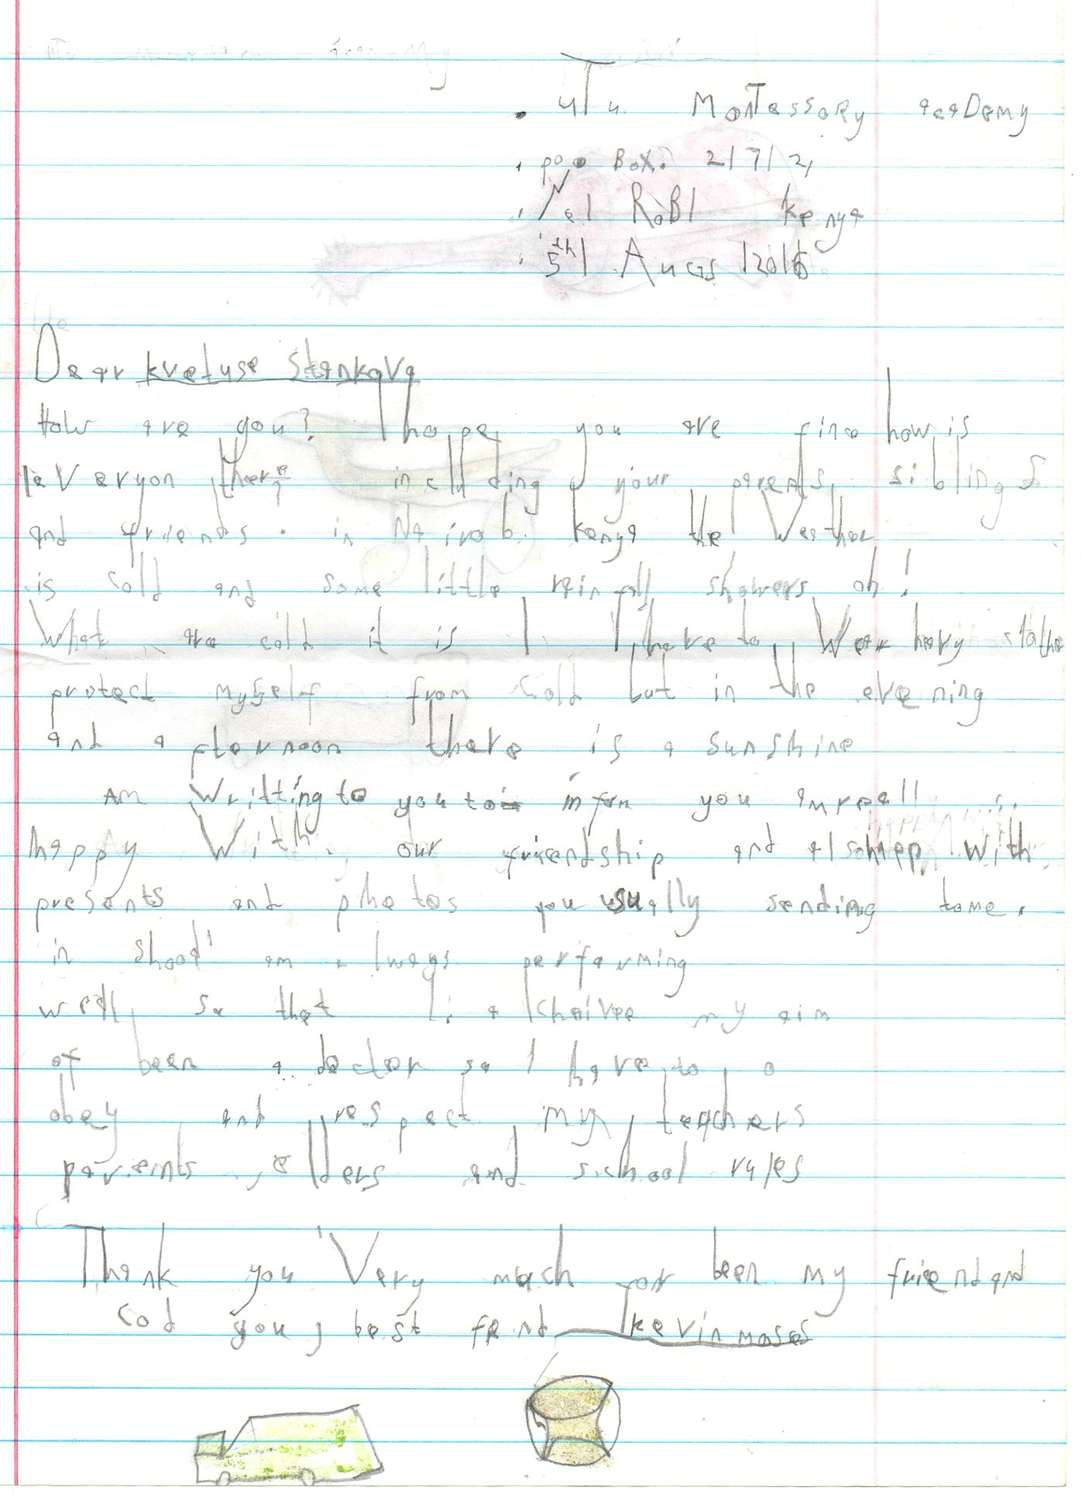 uTu. MonTessory acaDemy
po. Box. 21712,
Nai RoBI kenya
5th Augs 12016
Dear kvetuse Stankova
How are you? I hope you are fine how is
eVeryon there? inclding your parents, siblings
and friends. in Nairobi kenya the Weather
is cold and some little rainfall showers oh!
What are cold it is ! I have to Wear hevy
protect myself from cold but in the evening
and afternoon there is a sunshine
Am Writting to you to infrm you amreall
happy With our friendship and with
presents and photos you usually sending tome.
in am always performing
well so that I my aim
of been a doctor so I have to o
obey and respect my teachers
parents, ellders and school rules
Thank you Very much for been my friend and
God you, best frend kevin moses